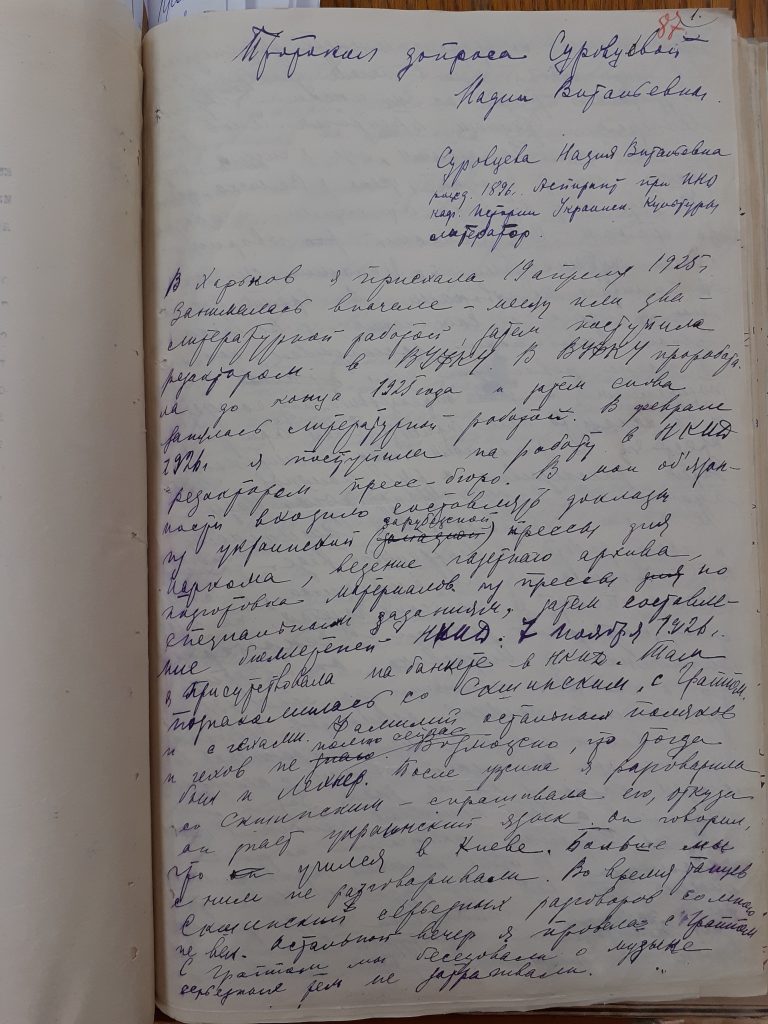 87 1.
Протокол допроса Суровцевой
Надии Витальевны.
Суровцева Надия Витальевна
рожд. 1896г. Аспирант при ИНО
каф. Истории Украинск. Культуры
литератор.
В Харьков я приехала 19 апреля 1925г.
Занималась вначале – месяц или два –
литературной работой, затем поступила
редактором в ВУФКУ. В ВУФКУ проработа
ла до конца 1925 года и затем снова
занялась литературной работой. В феврале
1926г. я поступила на работу в НКИД
редактором пресс-бюро. В мои об'язан-
ности входило составлять доклады
из украинской (западной) прессы для
зарубежной
Наркома, ведение газетного архива,
подготовка материалов из прессы для по
специальным заданиям, затем составле-
ние бюллетеней НКИД. 7 ноября 1926г.
я присутствовала на банкете в НКИД. Там
познакомилась со Скшинским, с Граттом
и с чехами. Фамилий остальных поляков
и чехов не знаю. помню сейчас Возможно, что тогда
был и Лехнер. После ужина я разговаривала
со Скшинским – спрашивала его, откуда
он знает украинский язык. он говорил,
что он учился в Киеве. Больше мы
с ним не разговаривали. Во время танцев
Скшинский серьезных разговоров со мною
не вел. Остальной вечер я провела с Граттом
С Граттом мы беседовали о музыке
серьезных тем не затрагивали.